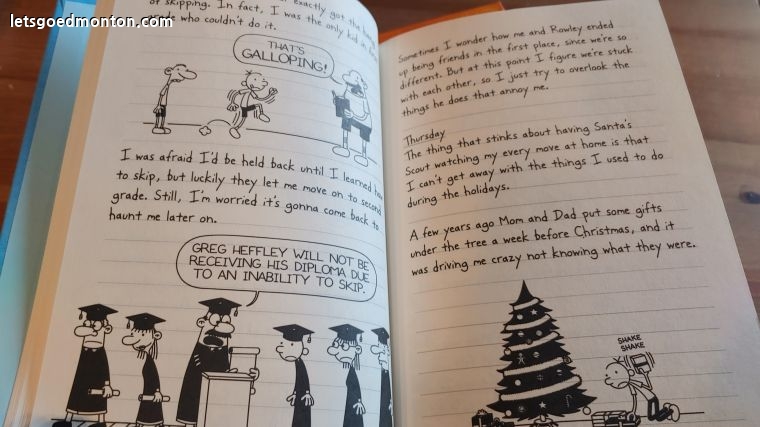 letsgoedmonton.com
exactly got the
of skipping. In fact, I was the only kid in
who couldn't do it.
THAT'S
GALLOPING!
I was afraid I'd be held back until I learned how
to skip, but luckily they let me move on to second
grade. Still, I'm worried it's gonna come back to
haunt me later on.
GREG HEFFLEY WILL NOT BE
RECEIVING HIS DIPLOMA DUE
TO AN INABILITY TO SKIP.
Sometimes I wonder how me and Rowley ended
up being friends in the first place, since we're so
different. But at this point I figure we're stuck
with each other, so I just try to overlook the
things he does that annoy me.
Thursday
The thing that stinks about having Santa's
Scout watching my every move at home is that
I can't get away with the things I used to do
during the holidays.
A few years ago Mom and Dad put some gifts
under the tree a week before Christmas, and it
was driving me crazy not knowing what they were.
SHAKE
SHAKE